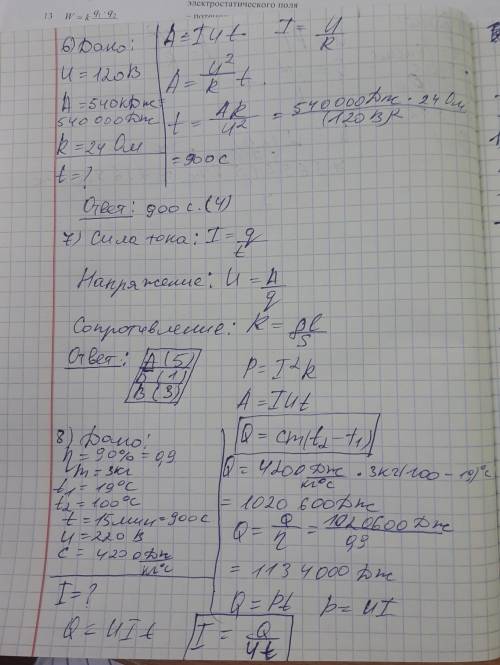 электростатического поля
13 W = k q₁·q₂
6) Дано:
U = 120 В
A = 540 кДж =
540 000 Дж
R = 24 Ом
t = ?
A = IUt  I = U/R
A = U²/R t
t = AR/U² = 540 000 Дж · 24 Ом/(120 В)²
= 900 с
Ответ: 900 с. (4)
7) Сила тока: I = q/t
Напряжение: U = A/q
Сопротивление: R = ρl/S
Ответ: А (5)
Б (1)
В (3)
P = I²R
A = IUt
8) Дано:
η = 90% = 0,9
m = 3 кг
t₁ = 19°C
t₂ = 100°C
t = 15 мин = 900 с
U = 220 В
c = 4200 Дж/кг°C
I = ?
Q = UIt
Q = cm(t₂ - t₁)
Q = 4200 Дж/кг°C · 3 кг (100 - 19)°C
= 1020 600 Дж
Q = Q/η = 1020600 Дж/0,9
= 1134 000 Дж
Q = Pt  P = UI
I = Q/Ut